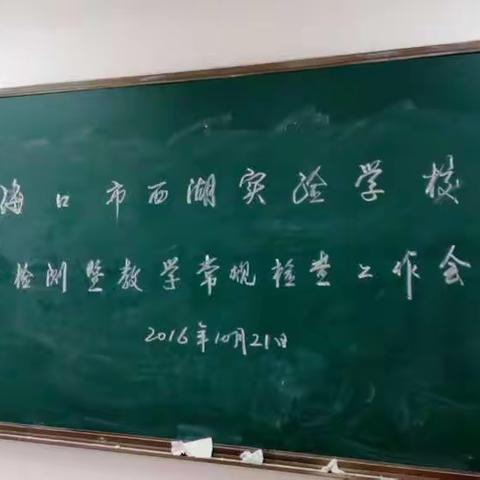 海口市西湖实验学校
检测暨教学常规检查工作会
2016年10月21日